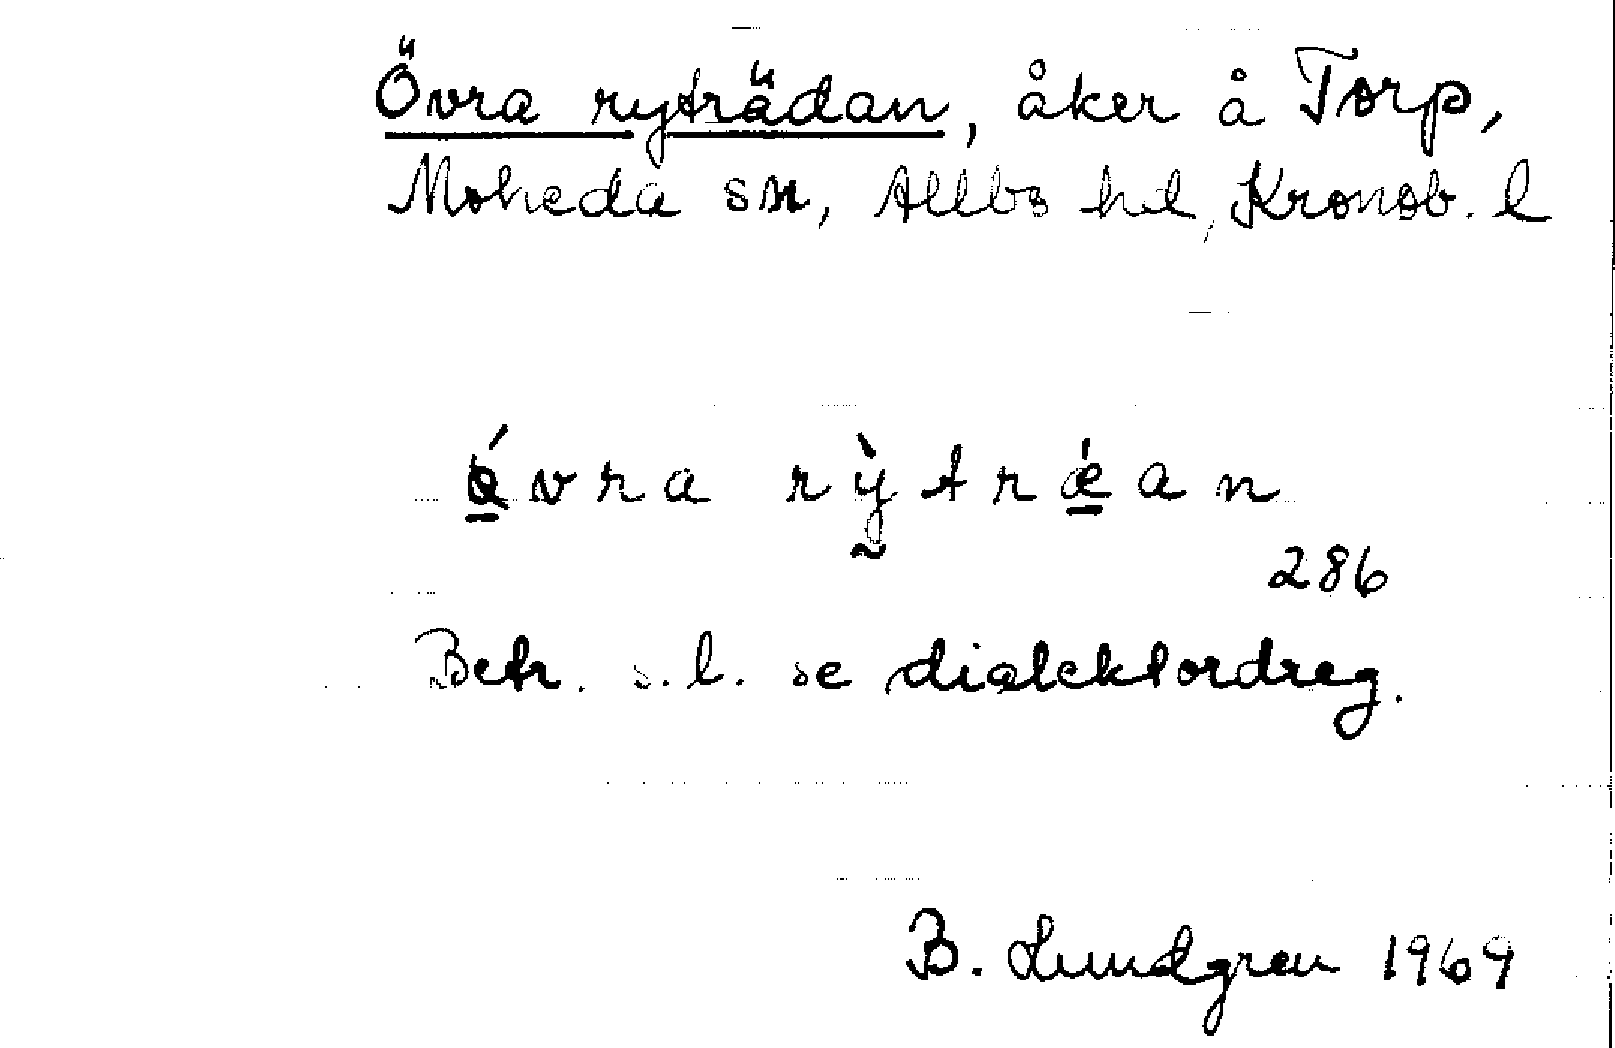 Övra ryträdan, åker å Torp,
Moheda sn, Allbo hd, Kronob. l
ǿvra rỳtrǽan
286
Betr. s.l. se dialektordreg.
B. Lundgren 1969